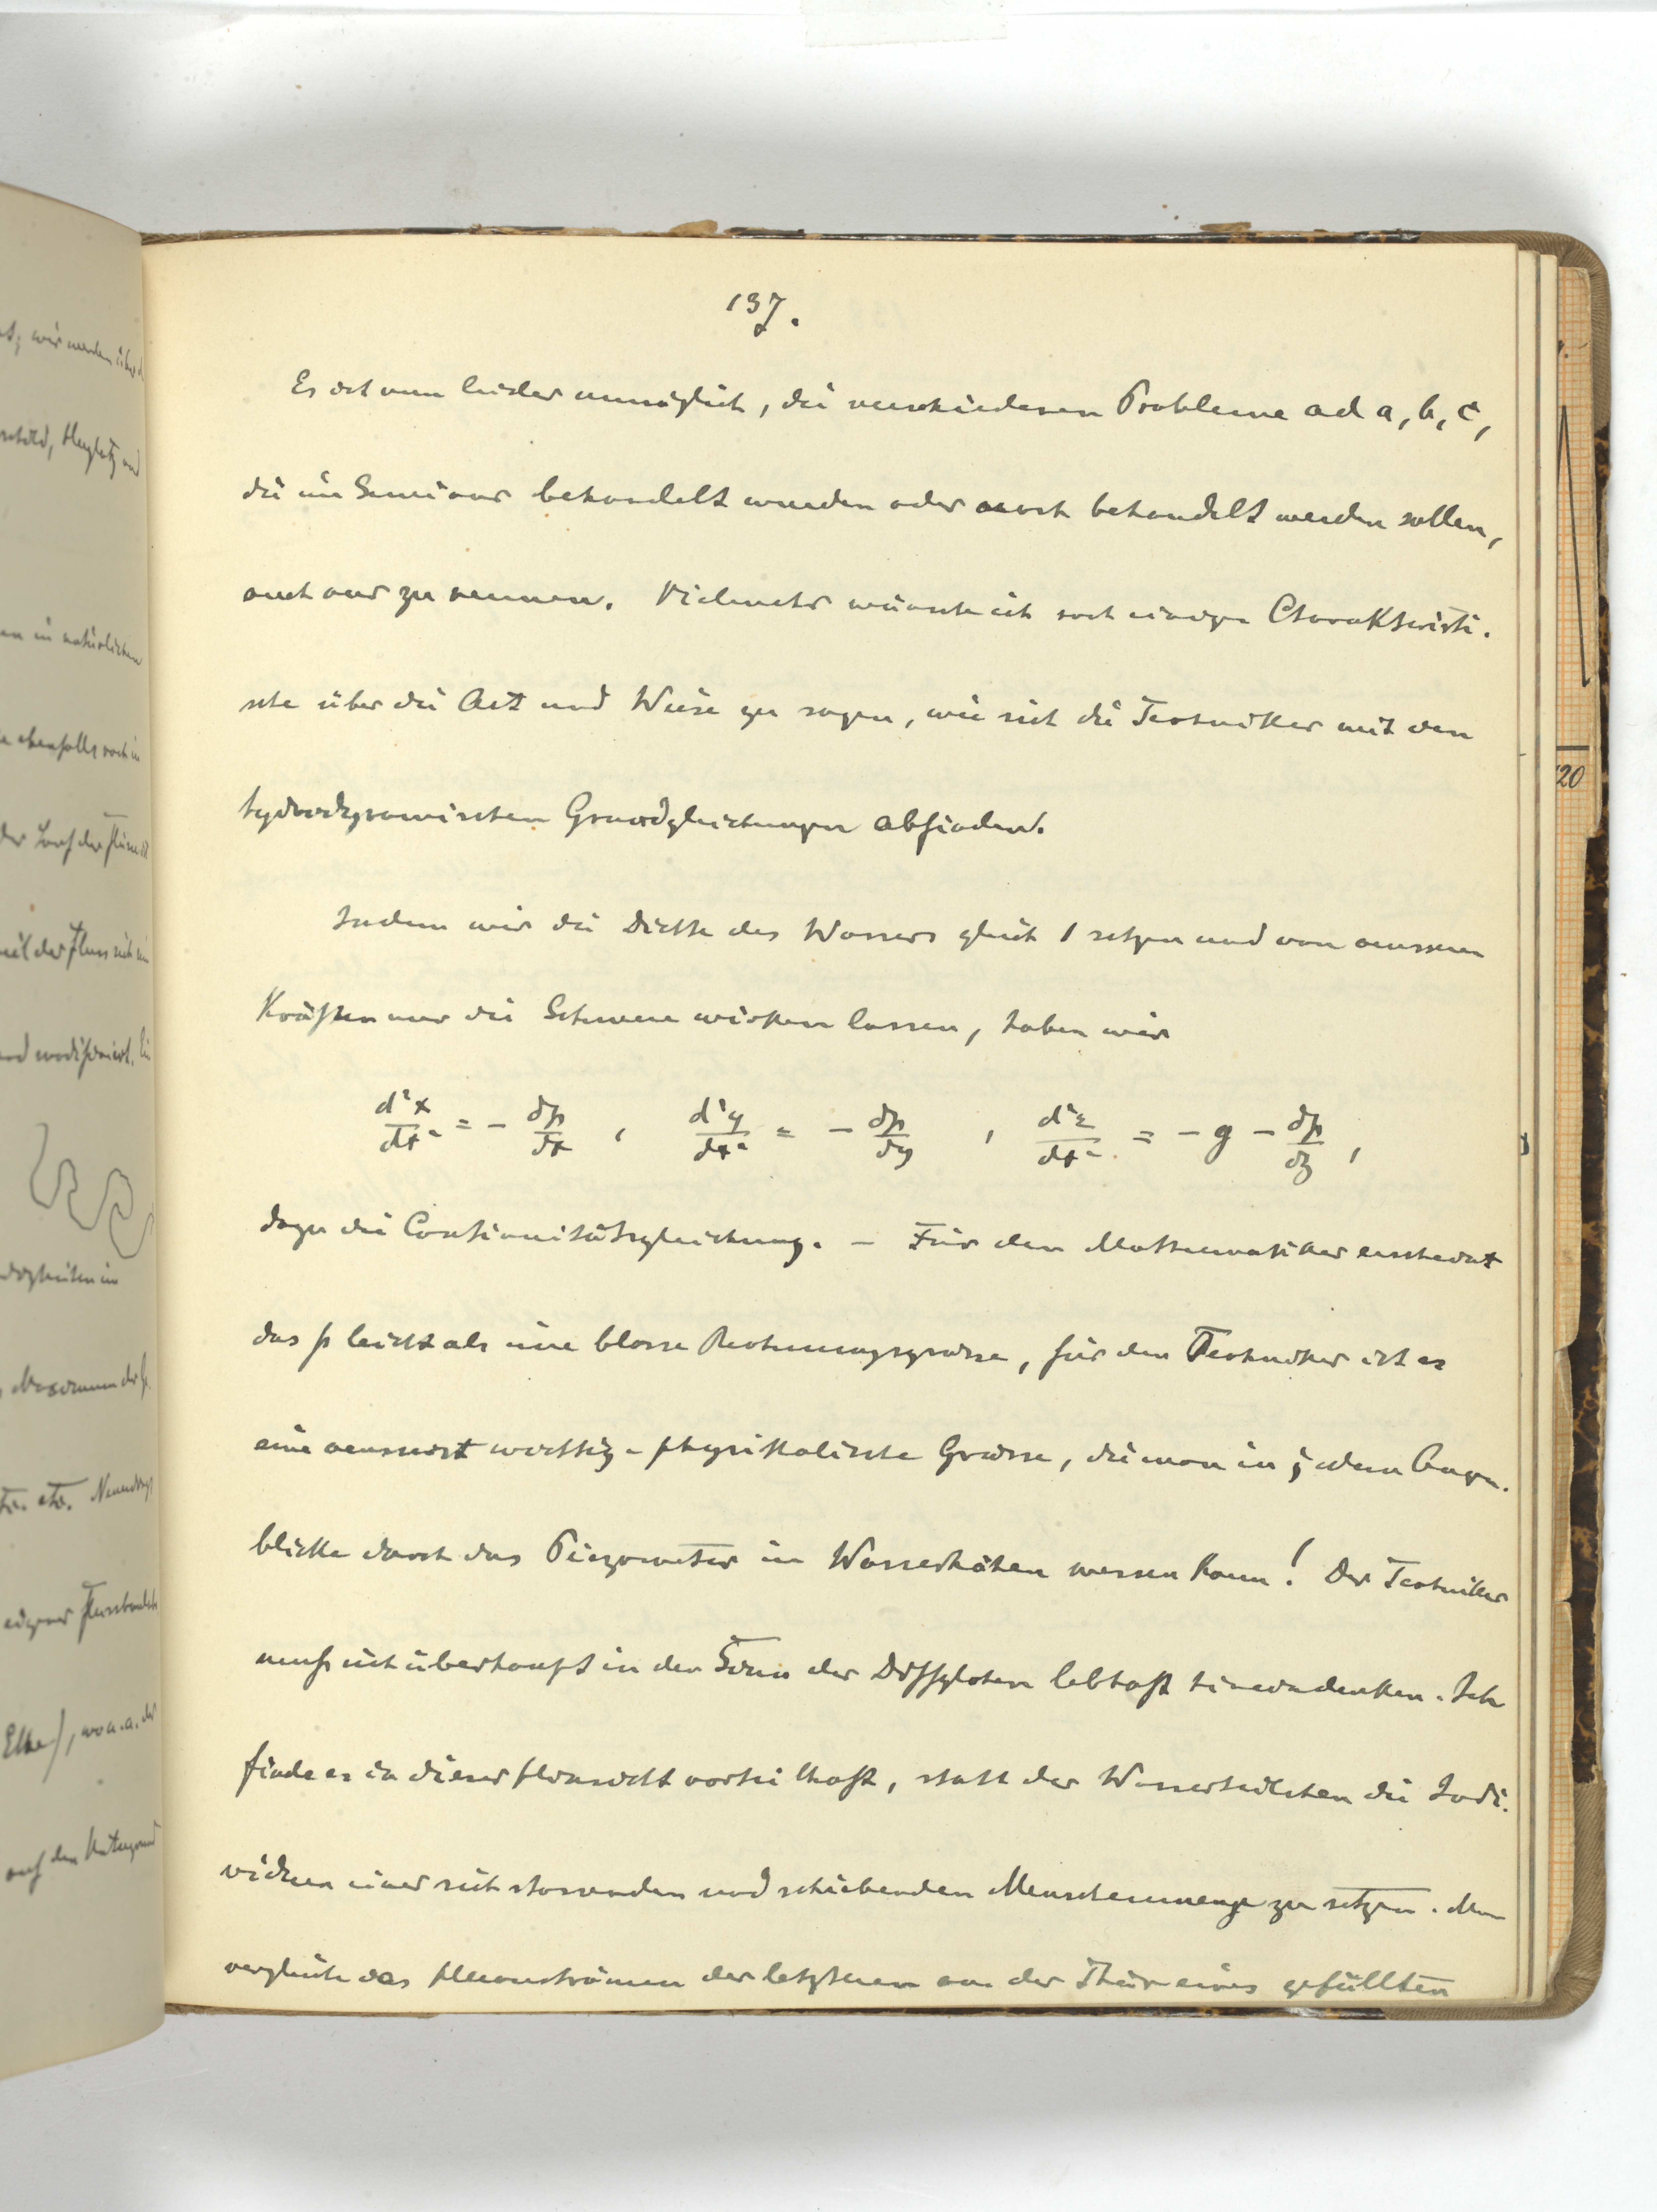 137.
Es ist nun leider unmöglich, die verschiedenen Probleme ad a, b, c,
die im Seminar behandelt wurden oder noch behandelt werden sollen,
auch nur zu nennen. Vielmehr wünsche ich noch einiges Charakteristi-
sche über die Art und Weise zu sagen, wie sich die Techniker mit den
hydrodynamischen Grundgleichungen abfinden.
Indem wir die Dichte des Wassers gleich 1 setzen und von äusseren
Kräften nur die Schwere wirken lassen, haben wir
d²x/dt² = - ∂p/∂x , d²y/dt² = - ∂p/∂y , d²z/dt² = - g - ∂p/∂z ,
dazu die Continuitätsgleichung. – Für den Mathematiker erscheint
das p leicht als eine blosse Rechnungsgrösse, für den Techniker ist es
eine aeusserst wichtige physikalische Grösse, die man in jedem Augen-
blicke durch das Piezometer in Wasserhöhen messen kann! Der Techniker
muß sich überhaupt in den Sinn der Diffglchen lebhaft hineindenken. Ich
finde es in dieser Hinsicht vorteilhaft, statt der Wasserteilchen die Indi-
viduen einer sich stossenden und schiebenden Menschenmenge zu setzen. Man
vergleiche das Herausströmen der letzteren an der Thür eines gefüllten
20